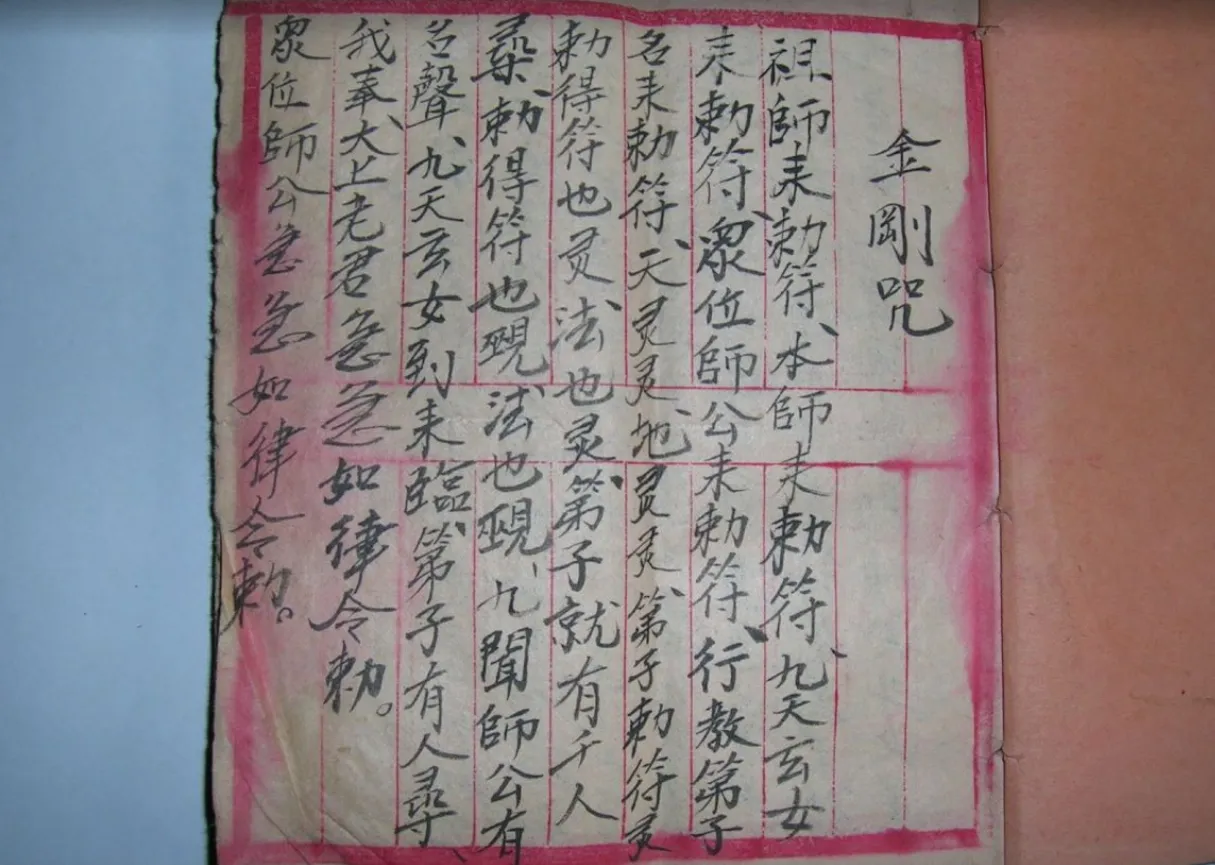 金剛咒
祖師来勅符、本師来勅符、九天玄女
来勅符、眾位師公来勅符、行教第子
名来勅符、天灵灵、地灵灵、第子勅符灵
勅得符也灵法也灵、第子就有千人
尋、勅得符也現、法也現、九聞師公有
名聲、九天玄女到来臨、第子有人尋、
我奉大上老君急急如律令勅。
眾位師公急急如律令勅。